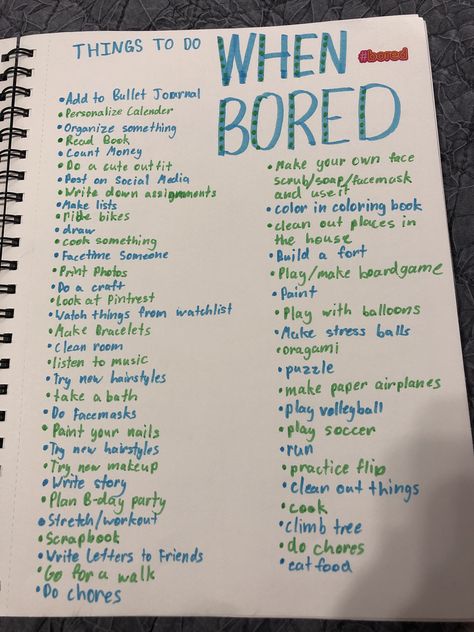 THINGS TO DO
WHEN
BORED
#bored
• Add to Bullet Journal
• Personalize Calender
• Organize something
• Read Book
• Count Money
• Do a cute outfit
• Post on Social Media
• Write down assignments
• Make lists
• ride bikes
• draw
• cook something
• Facetime Someone
• Print Photos
• Do a craft
• Look at Pintrest
• Watch things from watchlist
• Make Bracelets
• Clean room
• listen to music
• Try new hairstyles
• take a bath
• Do Facemasks
• Paint your nails
• Try new hairstyles
• Try new makeup
• Write story
• Plan B-day party
• Stretch/workout
• Scrapbook
• Write Letters to Friends
• Go for a walk
• Do chores
• Make your own face
scrub/soap/facemask
and use it
• color in coloring book
• clean out places in
the house
• Build a fort
• Play/make boardgame
• Paint
• Play with balloons
• Make stress balls
• oragami
• puzzle
• make paper airplanes
• play volleyball
• play soccer
• run
• practice flip
• clean out things
• cook
• climb tree
• do chores
• eat food